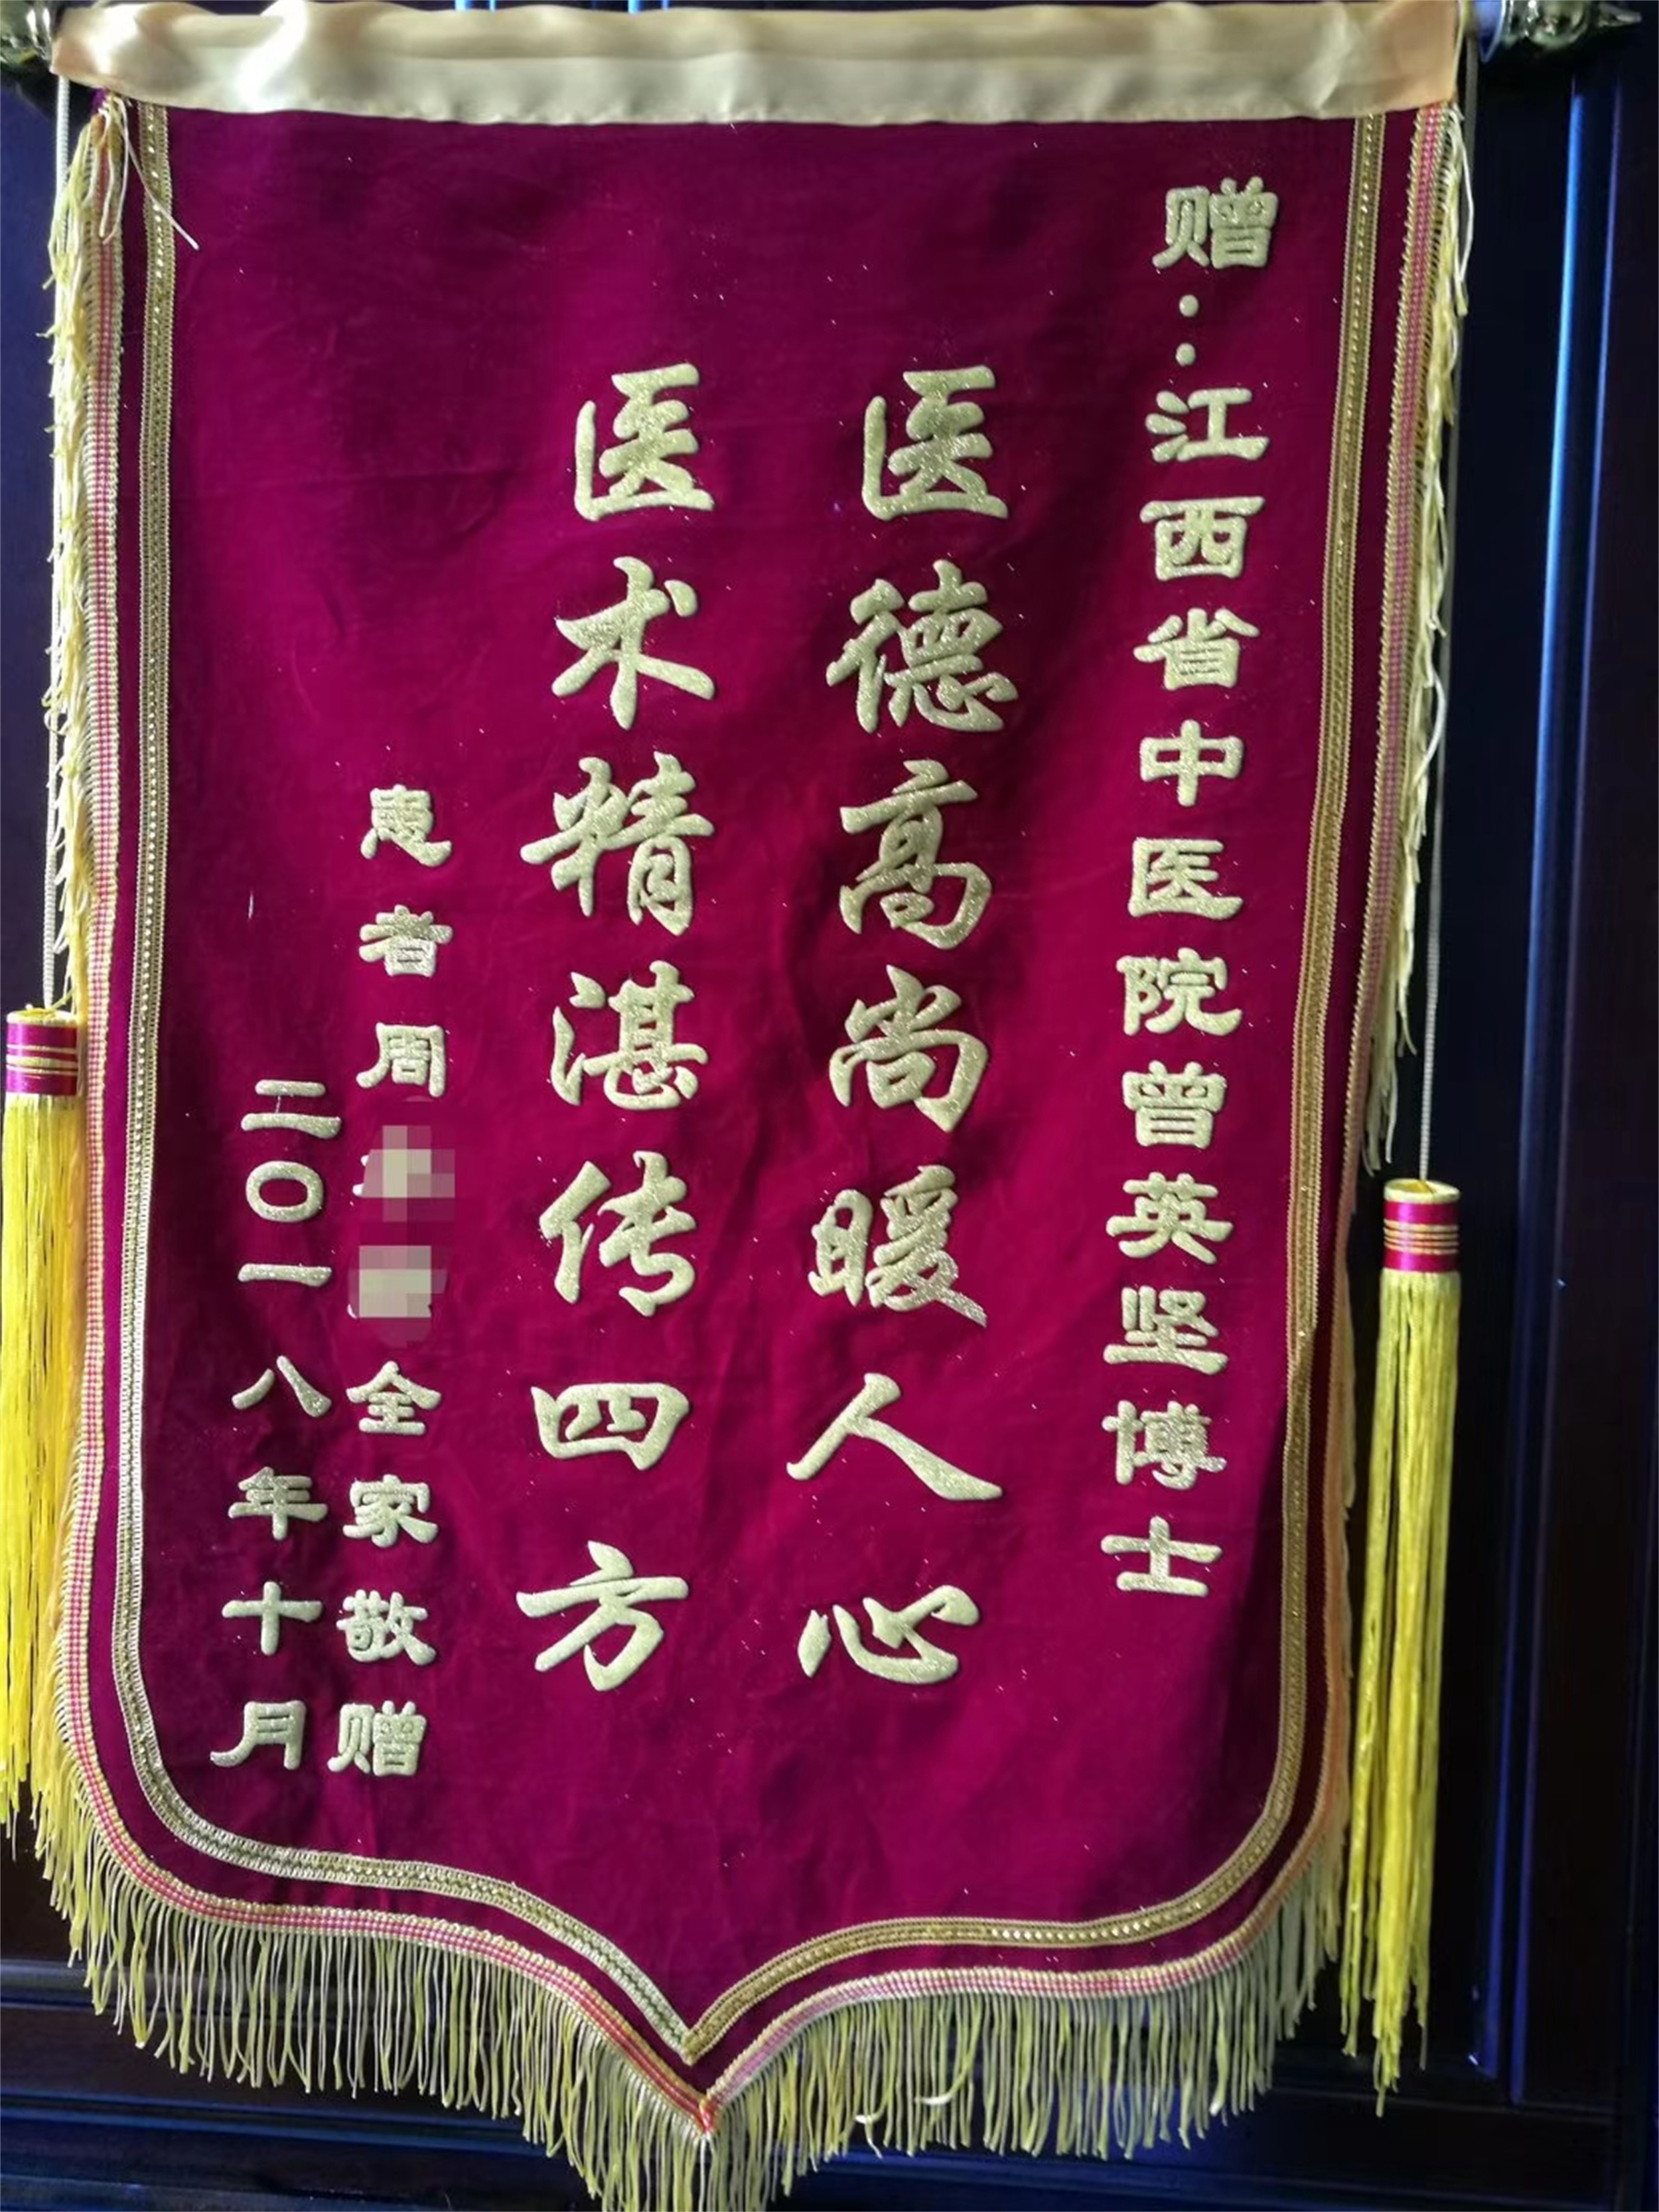 赠：江西省中医院曾英坚博士
医德高尚暖人心
医术精湛传四方
患者周全家敬赠
二〇一八年十月